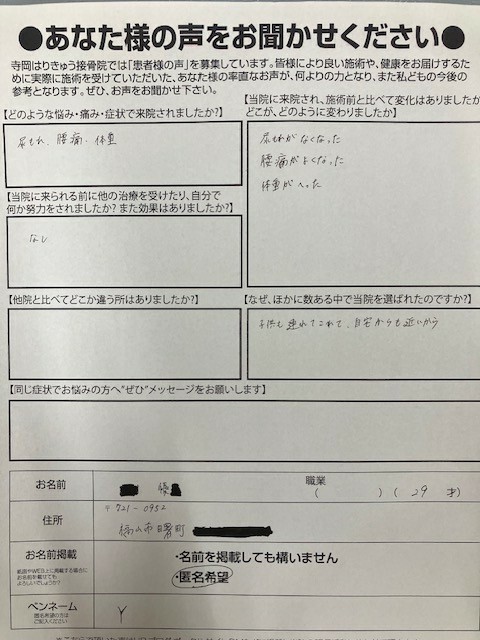 ●あなた様の声をお聞かせください●
寺岡はりきゅう接骨院では「患者様の声」を募集しています。皆様により良い施術や、健康をお届けするため
に実際に施術を受けていただいた、あなた様の率直なお声が、何よりの力となり、また私どもの今後の
参考となります。ぜひ、お声をお聞かせ下さい。
【どのような悩み・痛み・症状で来院されましたか?】
尿もれ、腰痛、体重
【当院に来院され、施術前と比べて変化はありましたか
どこが、どのように変わりましたか】
尿もれがなくなった
腰痛がよくなった
体重がへった
【当院に来られる前に他の治療を受けたり、自分で
何か努力をされましたか? また効果はありましたか?】
なし
【他院と比べてどこか違う所はありましたか?】
【なぜ、ほかに数ある中で当院を選ばれたのですか?】
子供も連れてこれて、自宅からも近いから
【同じ症状でお悩みの方へ"ぜひ"メッセージをお願いします】
お名前
様
職業
( ) ( 29 才)
住所
〒721-0952
福山市曙町
お名前掲載
紙面やWEB上に掲載する場合に
お名前を載せても
よろしいでしょうか?
・名前を掲載しても構いません
・匿名希望
ペンネーム
匿名希望の方は
ご記入ください
Y